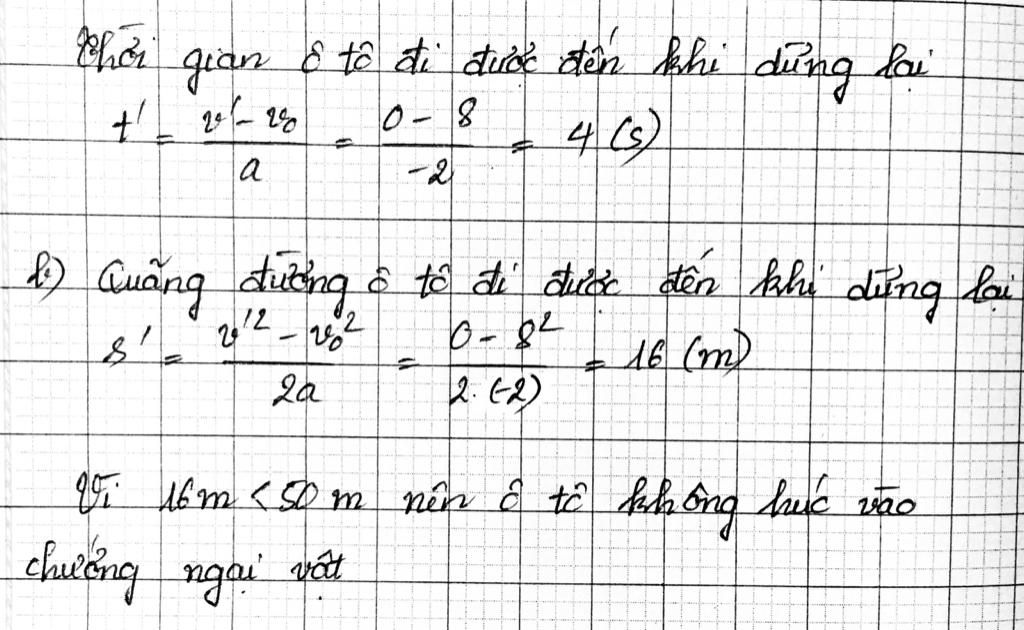 Thời gian ô tô đi được đến khi dừng lại
t' = (v' - v₀)/a = (0 - 8)/(-2) = 4 (s)
b) Quãng đường ô tô đi được đến khi dừng lại
s' = (v'² - v₀²)/(2a) = (0 - 8²)/(2.(-2)) = 16 (m)
Vì 16m < 50m nên ô tô không húc vào
chướng ngại vật